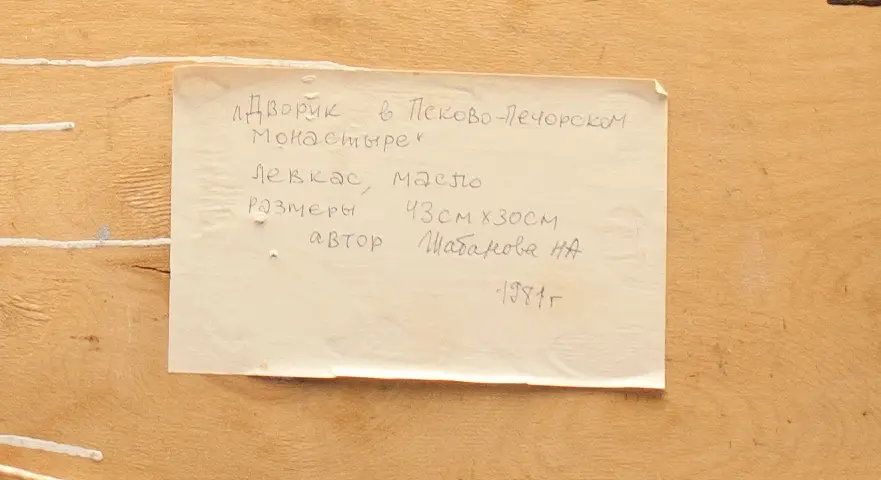 „Дворик в Псково-Печорском
монастыре"
левкас, масло
размеры 43см х 30см
автор Шабанова НА
1981г